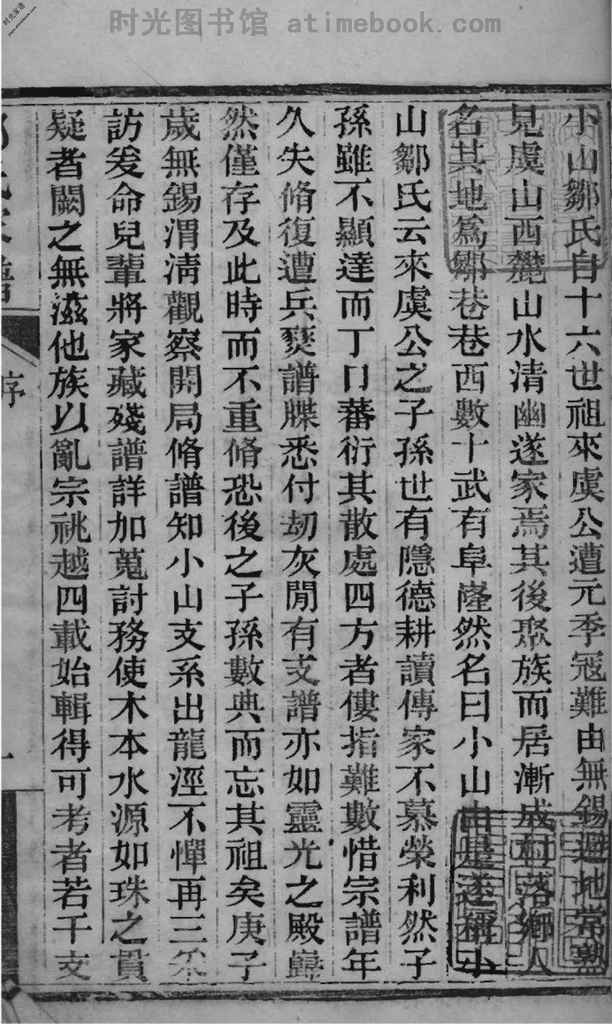 时光图书馆 atimebook.com
小山鄒氏自十六世祖來虞公遭元季冦難由無錫避地常熟
見虞山西麓山水清幽遂家焉其後聚族而居漸成村落鄉人
名其地為鄒巷巷西數十武有阜隆然名曰小山由是遂稱小
山鄒氏云來虞公之子孫世有隱德耕讀傳家不慕榮利然子
孫雖不顯達而丁口蕃衍其散處四方者僂指難數惜宗譜年
久失脩復遭兵燹譜牒悉付劫灰閒有支譜亦如靈光之殿巋
然僅存及此時而不重脩恐後之子孫數典而忘其祖矣庚子
歲無錫渭清觀察開局脩譜知小山支系出龍涇不憚再三采
訪爰命兒輩將家藏殘譜詳加蒐討務使木本水源如珠之貫
疑者闕之無滋他族以亂宗祧越四載始輯得可考者若干支
序
一